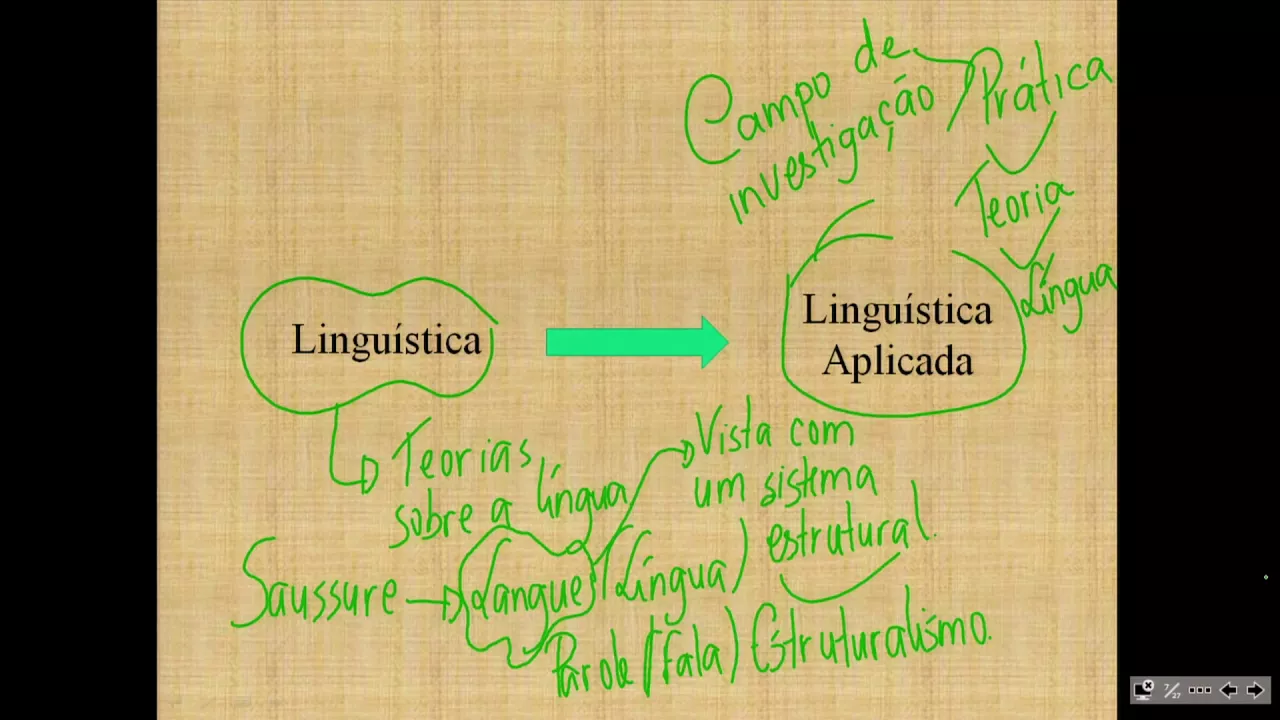 Campo de
investigação
Prática
Teoria
Língua
Linguística
Linguística
Aplicada
Teorias
sobre a língua
Vista com
um sistema
estrutural.
Saussure
Langue (Língua)
Parole (Fala)
Estruturalismo.
7/27